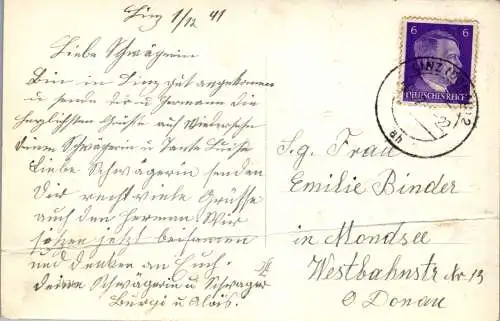 Linz 1/12 41
Liebe Schwägerin
Bin in Linz gut angekommen
u sende dir u Hermann die
herzlichsten Grüße auf Wiedersehn
deine Schwägerin u Tante Luise
Liebe Schwägerin senden
Dir recht viele Grüsse
auch den Herman Wir
sitzen jetzt beisamen
und denken an Euch.
Deine Schwägerin u Schwager
Burgi u Alois.
6 6
DEUTSCHES REICH
LINZ
S.g. Frau
Emilie Binder
in Mondsee
Westbahnstr Nr 13
O Donau